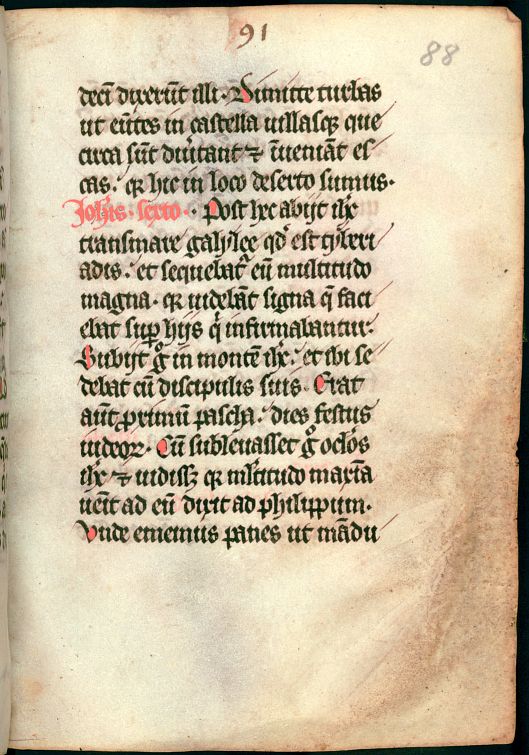 91
88
deci dixerūt illi · Dimitte turbas
ut eūtes in castella uillasqȝ que
circa sūt diūtant ⁊ īueniāt es
cas. qꝛ hic in loco deserto sumus·
Joh̄is · sexto · Post hec abijt ih̄c
transmare galylee qd̓ est tyberi
adis. et sequebat᷑ eū multitudo
magna · qꝛ uidebāt signa q̄ faci
ebat suꝑ hijs q̇ infirmabantur·
Subijt gͦ in montē ih̄c · et ibi se
debat cū discipulis suis · Erat
aūt proximū pascha · dies festus
iudeoꝝ · Cū subleuasset gͦ oclōs
ih̄c ⁊ uidissȝ qꝛ ml̄titudo maxīa
uēit ad eū dixit ad philippum·
Vnde ememus panes ut mādu